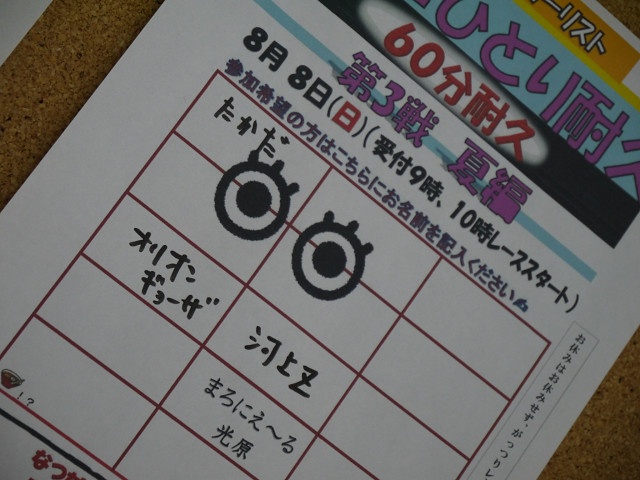 ーリスト
ひとり耐久
60分耐久
第3戦 夏編
8月 8日(日)(受付9時、10時レーススタート)
参加希望の方はこちらにお名前を記入ください
たかだ
オリオン
ギョーザ
河上
まろにえ〜る
光原
!?
お休みはお休みせず、がっつりレ
なつだ